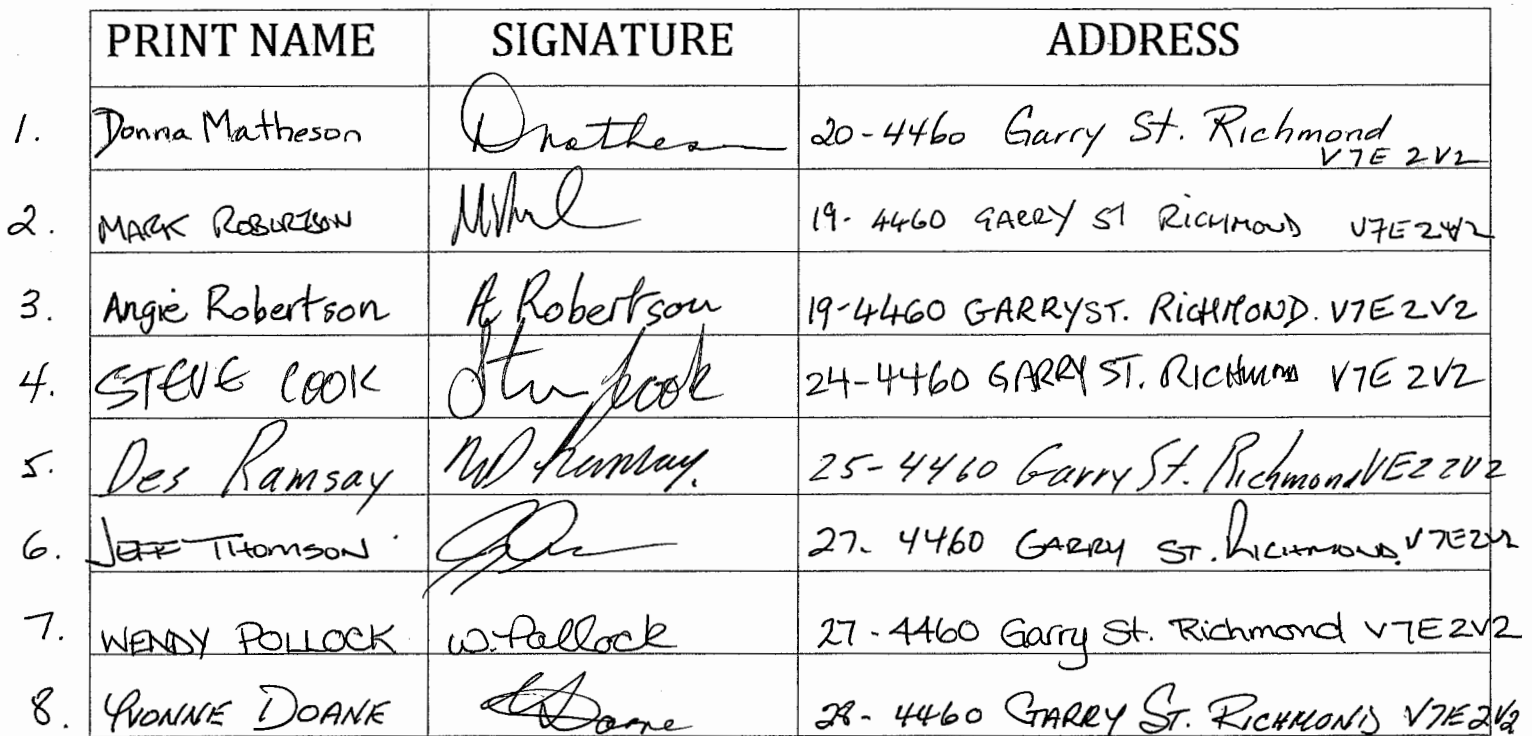 PRINT NAME SIGNATURE ADDRESS
1. Donna Matheson Dmathes 20-4460 Garry St. Richmond
V7E 2V2
2. MARK ROBERTSON 19- 4460 GARRY ST RICHMOND V7E 2V2
3. Angie Robertson A Robertson 19-4460 GARRY ST. RICHMOND. V7E 2V2
4. STEVE COOK Cook 24-4460 GARRY ST. RICHMOND V7E 2V2
5. Des Ramsay Ramsay. 25-4460 Garry St. Richmond VE2 2V2
6. JEFF THOMSON 27- 4460 GARRY ST. RICHMOND. V7E2V2
7. WENDY POLLOCK W. Pollock 27-4460 Garry St. Richmond V7E2V2
8. YVONNE DOANE Doane 28- 4460 GARRY ST. RICHMOND V7E2V2